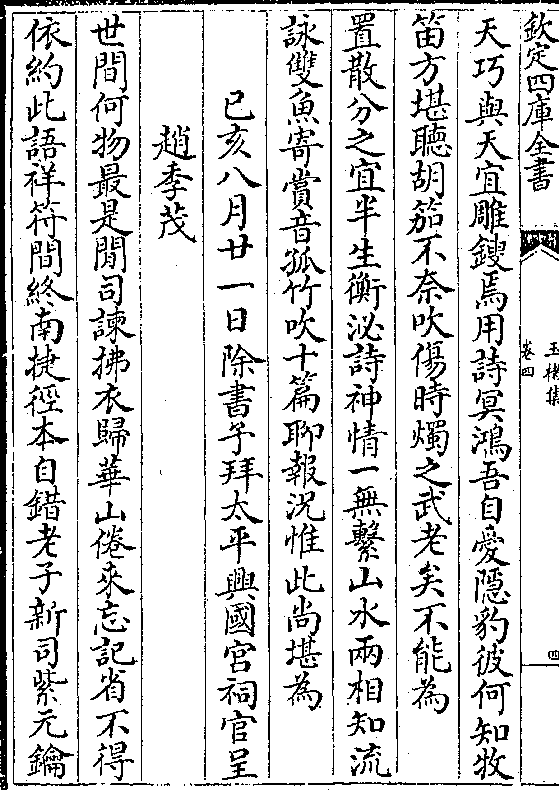 欽定四庫全書
玉楮集
卷四
四
天巧與天宜雕鎪焉用詩冥鴻吾自愛隱豹彼何知牧
笛方堪聽胡笳不奈吹傷時燭之武老矣不能為
置散分之宜半生衡泌詩神情一無繫山水兩相知流
詠雙魚寄賞音孤竹吹十篇聊報況惟此尚堪為
己亥八月廿一日除書予拜太平興國宮祠官呈
趙季茂
世間何物最是閒司諫拂衣歸華山倦來忘記省不得
依約此語祥符間終南捷徑本自錯老子新司紫元鑰